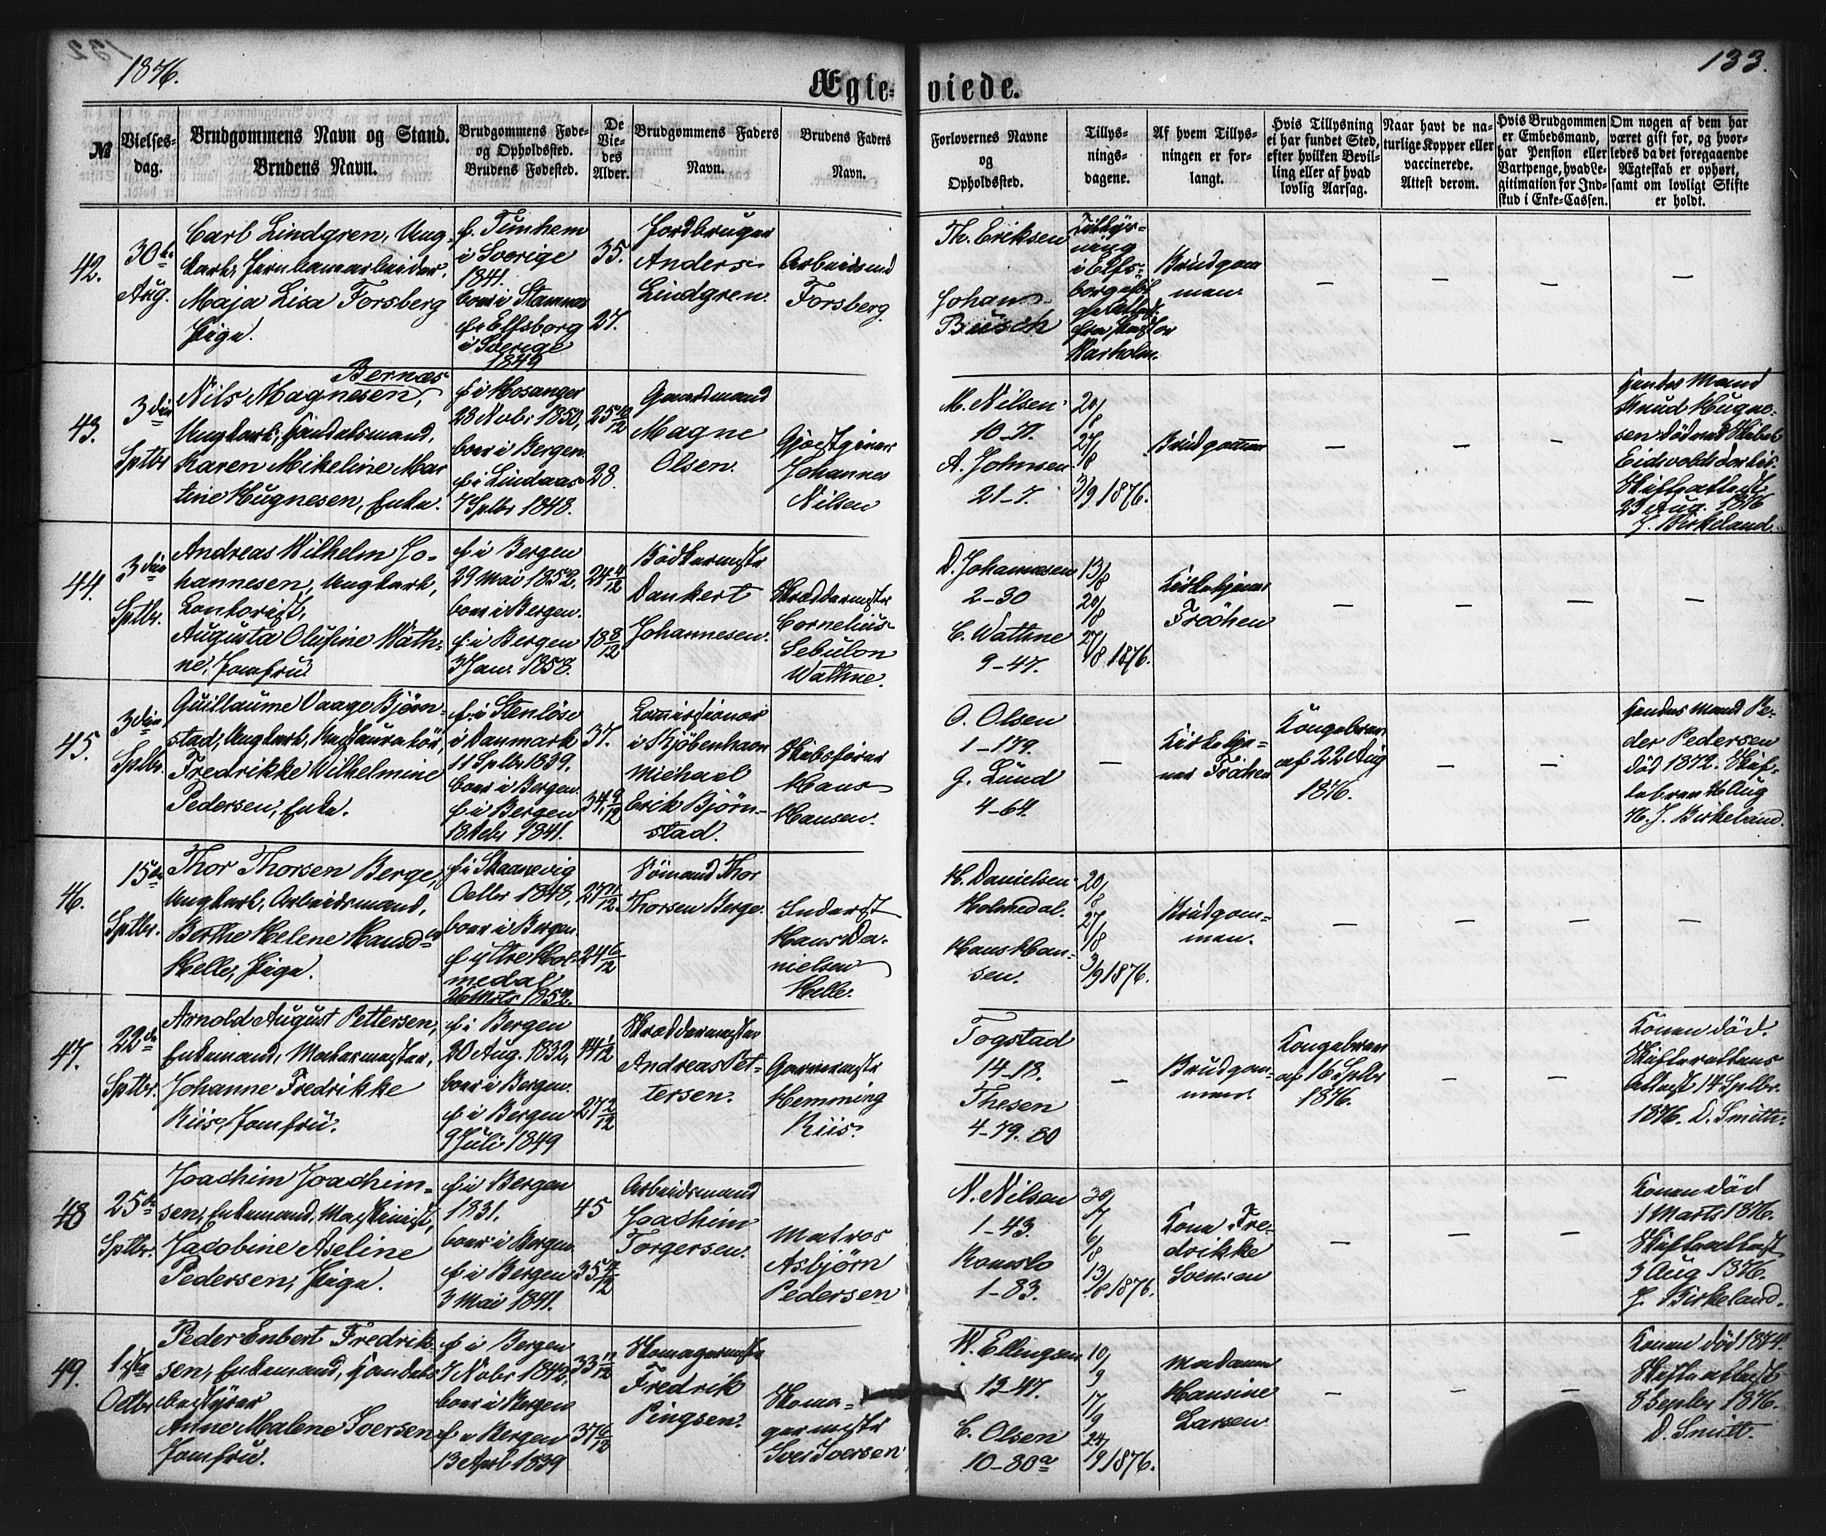 1876.
133.
Ægte-
viede.
№
Vielses-
dag.
Brudgommens Navn og Stand.
Brudens Navn.
Brudgommens Føde-
og Opholdssted.
Brudens Fødested.
De
Vie-
des
Alder.
Brudgommens Faders
Navn.
Brudens Faders
Navn.
Forlovernes Navne
og
Opholdssted.
Tillys-
nings-
dagene.
Af hvem Tillys-
ningen er for-
langt.
Hvis Tillysning
ei har fundet Sted,
efter hvilken Bevil-
ling eller af hvad
lovlig Aarsag.
Naar havt de na-
turlige Kopper eller
vaccinerede.
Attest derom.
Hvis Brudgommen
er Embedsmand,
har Pension eller
Vartpenge, hvad Le-
gitimation for Ind-
skud i Enke-Cassen.
Om nogen af dem har
været gift før, og hvor-
ledes da det foregaaende
Ægteskab er ophørt,
samt om lovligt Skifte
er holdt.
42.
30te
Aug.
Carl Lindgren, Ung-
karl, Jernbanearbeider,
Maja Lisa Forsberg
Pige.
f. Timhem
i Sverige
1841.
boer i Stamnæs
f. i Elfsborg
i Sverige
1849
35.
27.
Jordbruger
Anders
Lindgren.
Arbeidsmd
Forsberg.
Th. Eriksen
Johan
Busch
Brudgom
men.
—
—
—
—
43.
3die
Sptbr.
Bernæs
Nils Magnesen,
Ungkarl, Handelsmand,
Karen Mikeline Mar
tine Hugnesen, Enke.
f. i Hosanger
28 Nobr 1850,
boer i Bergen
f. i Lindaas
7 Sptbr 1848.
25 10/12
28.
Gaardmand
Magne
Olsen.
Gjæstgiver
Johannes
Nilsen
M. Nilsen
10-71.
A. Johnsen
21-7.
20/8
27/8
3/9 1876.
Brudgommen
—
—
—
Hendes Mand
Knud Hugne-
sen død
Skifteattest
23 Aug. 1876
J. Birkeland.
44.
3die
Sptbr.
Andreas Wilhelm Jo-
hannesen, Ungkarl,
Contorist,
Augusta Olufine Wath-
ne, Jomfru.
f. i Bergen
29 Mai 1852,
boer i Bergen.
f. i Bergen
3 Jan. 1858.
24 4/12
18 8/12
Bødkermstr
Dankert
Johannesen.
Skræddermstr
Cornelius
Sebulon
Wathne.
D. Johannesen
2-30
C. Wathne
9-47.
13/8
20/8
27/8 1876.
Kirketjener
Frøchen
—
—
—
—
45.
3die
Sptbr.
Guillaume Vaage Bjørn-
stad, Ungkarl, Restauratør,
Fredrikke Wilhelmine
Pedersen, Enke.
f. i Stenløse
i Danmark
11 Sptbr 1839.
boer i Bergen.
f. i Bergen
1841.
37.
34 9/12
i Kjøbenhavn
Michael
Erik Bjørn-
stad.
Skibsfører
Hans
Hansen.
O. Olsen
1-179.
G. Lund
4-64.
—
Kirketje-
ner Frøchen
Kongebrev
af 22 Aug
1876.
—
—
Hendes Mand Pe-
der Pedersen
død 1872. Skif-
tebrev Aug
H. J. Birkeland.
46.
15de
Sptbr.
Thor Thorsen Berge,
Ungkarl, Arbeidsmand,
Berthe Helene Hansd.
Helle, Pige.
f. i Skaanevig
Octbr 1848,
boer i Bergen
f. ytre Hol-
medal
26 Mrts 1852.
27 11/12
24 6/12
Sømand Thor
Thorsen Berge.
Inderst
Hans Da-
nielsen
Helle.
H. Danielsen
Holmedal.
Hans Han-
sen.
20/8
27/8
3/9 1876.
Brudgom-
men.
—
—
—
—
47.
22de
Sptbr.
Arnold August Pettersen,
Enkemand, Malermester,
Johanne Fredrikke
Riis, Jomfru.
f. i Bergen
20 Aug. 1832,
boer i Bergen.
f. i Bergen
9 Juli 1849
44 1/12
27 2/12
Skræddermester
Andreas Pet-
tersen.
Garvermstr
Hemming
Riis.
Togstad
14-18.
Thesen
4-79.80
—
Brudgom-
men.
Kongebrev
af 16 Sptbr
1876.
—
—
Konen død
Skifterettens
Attest 14 Sptbr.
1876. D. Smith.
48
25de
Sptbr.
Joachim Joachim-
sen, Enkemand, Maskinist,
Jacobine Aseline
Pedersen, Pige.
f. i Bergen
1831.
boer i Bergen
f. i Bergen
3 Mai 1841.
45
35
Arbeidsmand
Joachim
Torgersen.
Matros
Asbjørn
Pedersen
N. Nilsen
1-43.
1-83.
30/7
6/8
13/8 1876.
Kone Fre-
drikke
Soensen
—
—
—
Konen død
1 Marts 1876.
Skifteattest
5 Aug 1876.
J. Birkeland.
49.
1ste
Octbr
Peder Enbert Fredrik-
sen, Enkemand, Handels
bestyrer
Anne Malene Soersen
Jomfru.
f. i Bergen
7 Nobr 1842,
boer i Bergen
f. i Bergen
13 April 1839
33
37
Skomagermstr
Fredrik
Pingsen.
Skoma-
germstr
W. Ellingsen
13-47.
C. Olsen
10-80a
10/9
17/9
24/9 1876.
Madame
Hansine
Larsen
—
—
—
Konen død 1874.
Skifteattest
8 Septbr 1876.
D. Smitt.